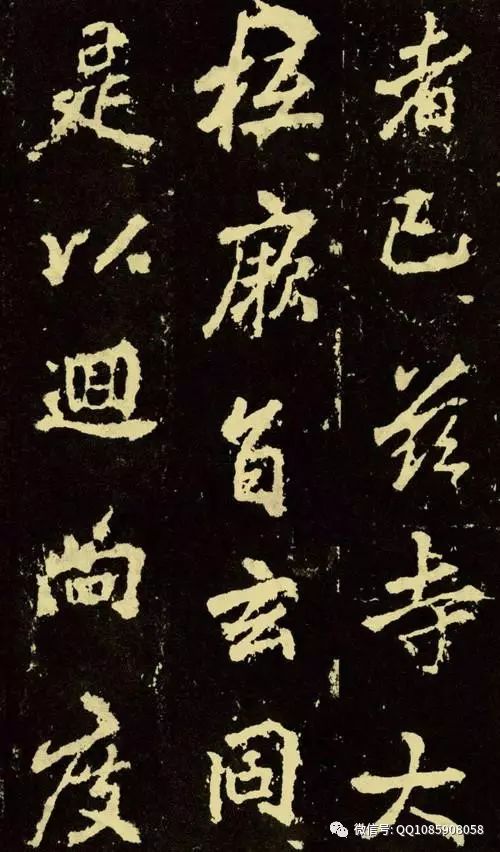 者已茲寺大
厥旨玄同
是以迴向度
微信号: QQ1085908058